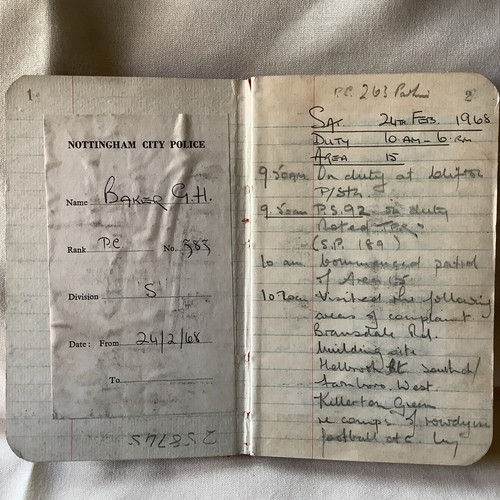 1
NOTTINGHAM CITY POLICE
Name BAKER G.H.
Rank P.C No. 383
Division 'S'
Date: From 24/2/68
To
258745
P.C. 263
2
SAT. 24TH FEB. 1968
DUTY 10 AM - 6 PM
AREA 15
9.50am On duty at Clifton
P/Stn.
9.50am P.S. 92 on duty
Noted
(S.P. 189)
10 am Commenced patrol
of Area 15
10.20am Visited the following
areas of complaint
Bransdale Rd.
building site
south/
Farnboro. West.
Killerton Green
re comps of rowdyism
football etc.